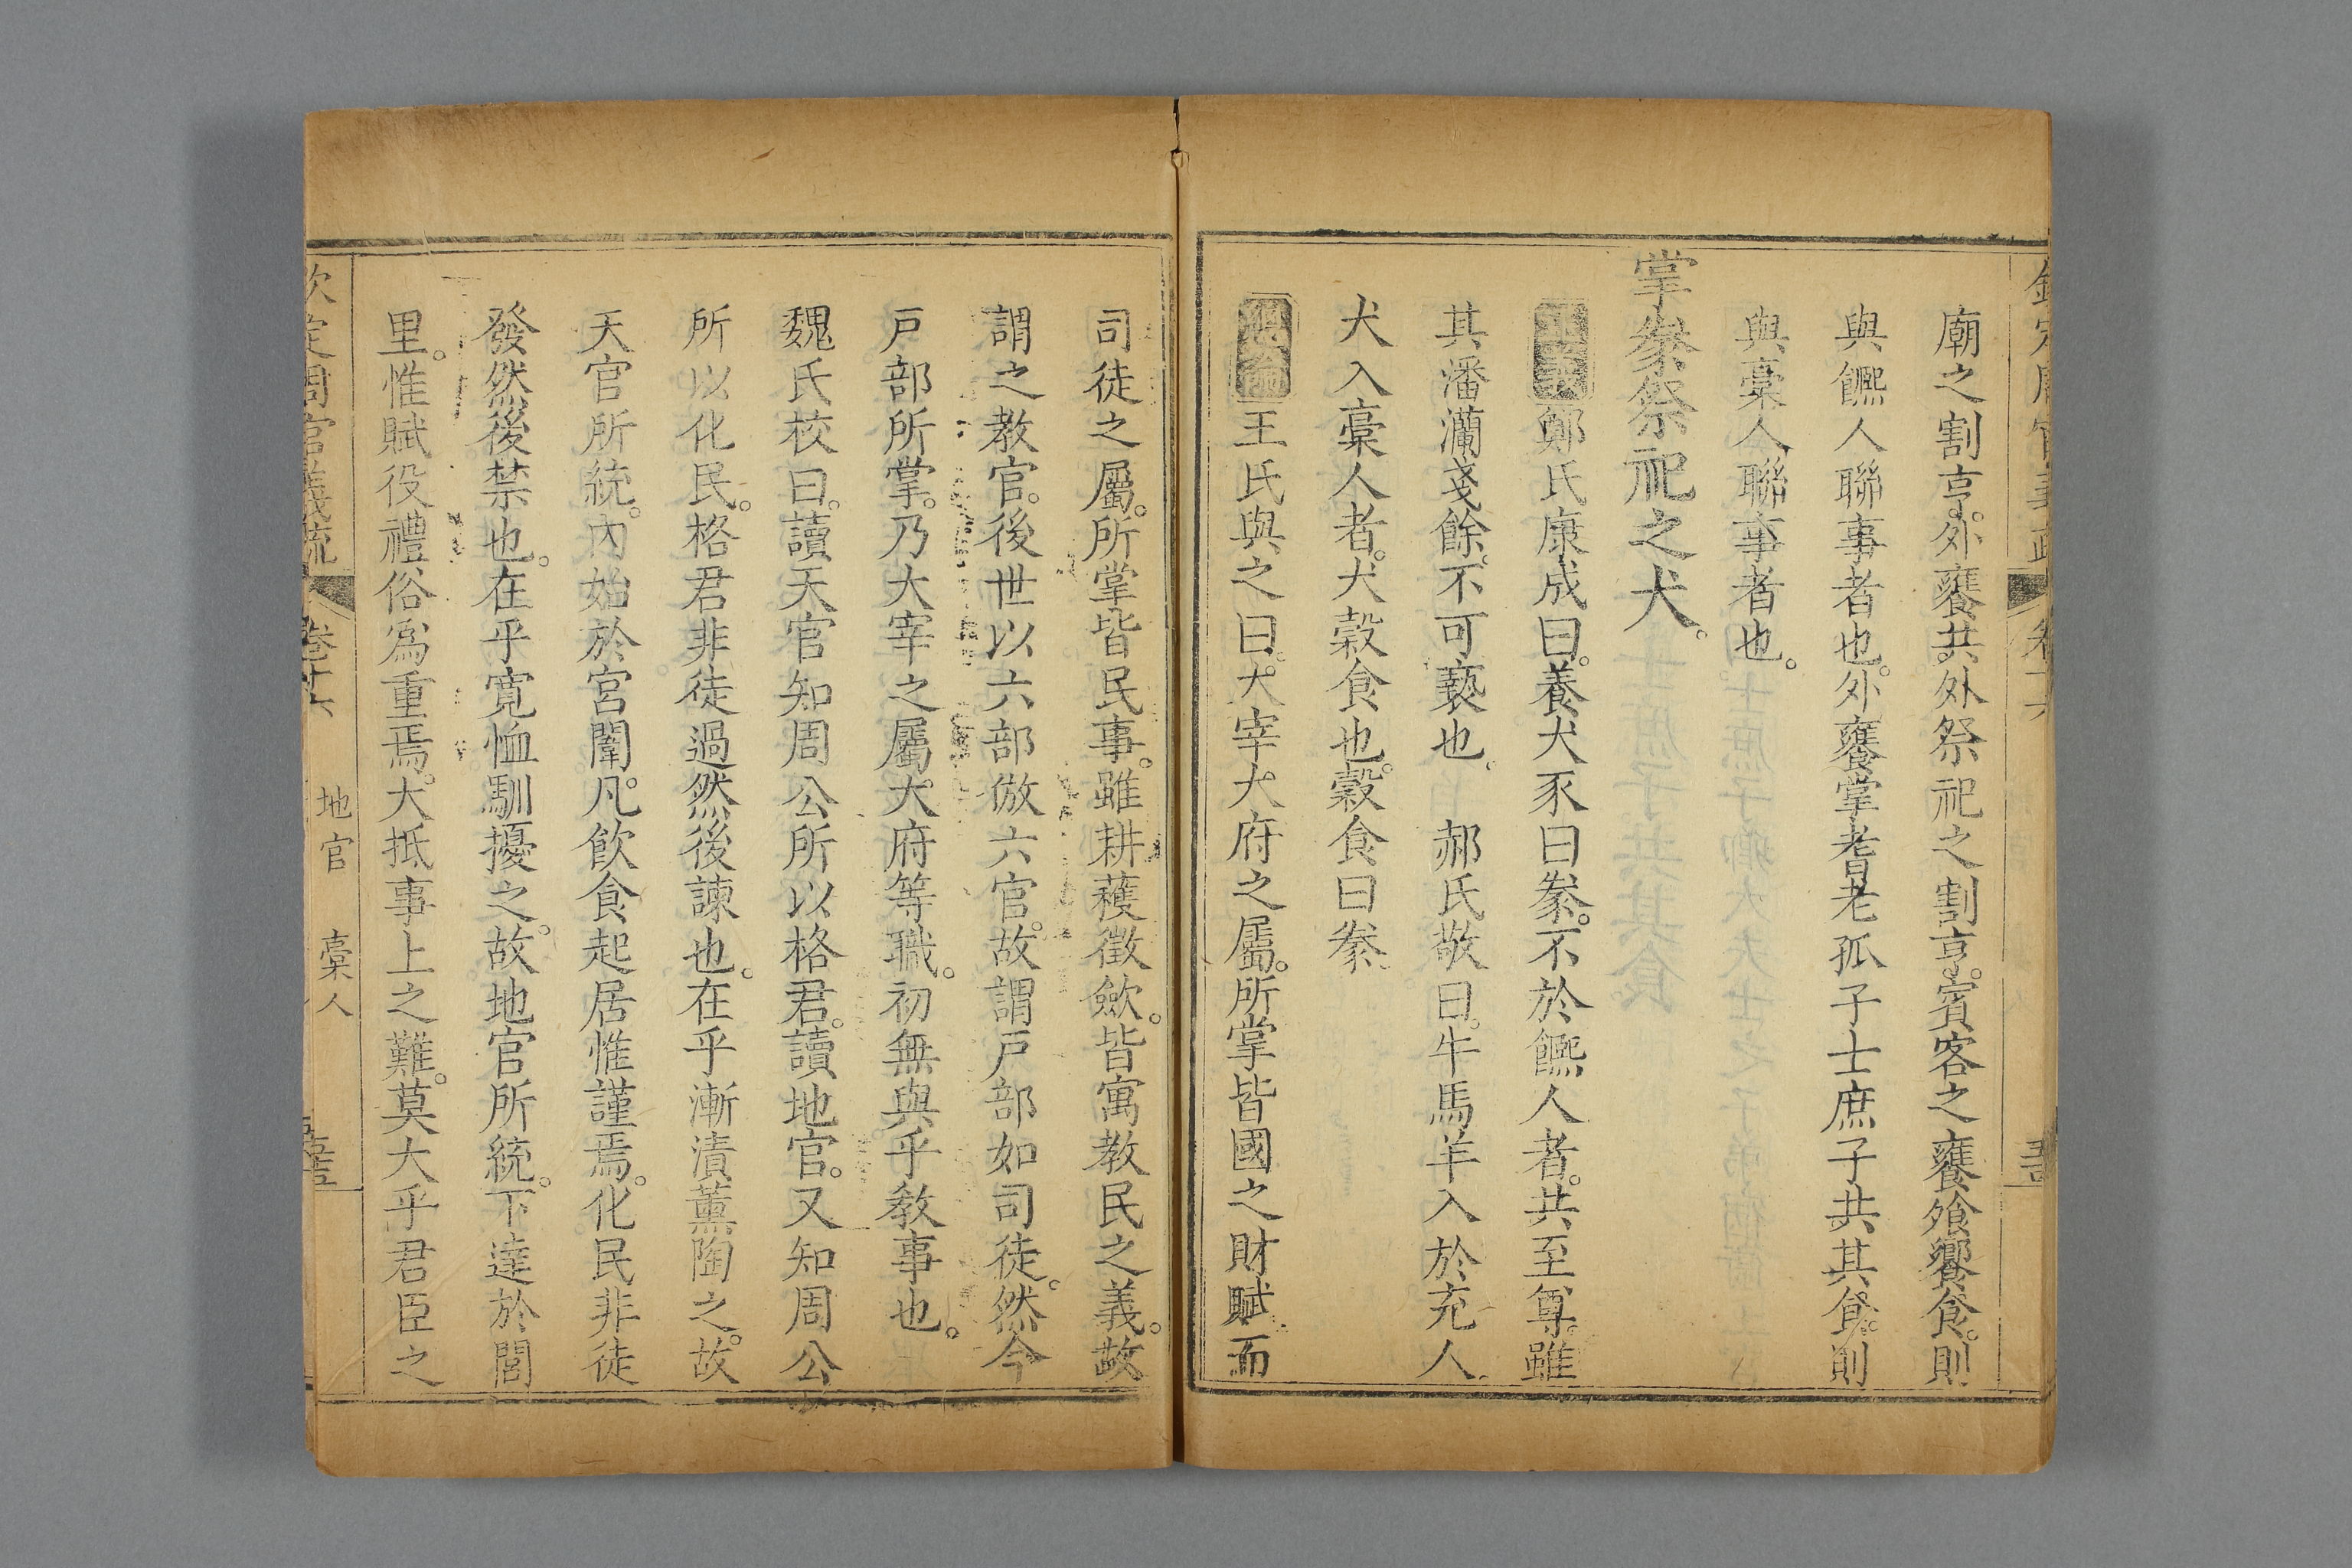 廟之割亨。外饔共外祭祀之割亨。賓客之饔飧饗食。則
與饎人聯事者也。外饔掌耆老孤子士庶子共其食。則
與槀人聯事者也。
掌豢祭祀之犬。
正義鄭氏康成曰。養犬豕曰豢。不於饎人者。共至尊。雖
其潘灡戔餘。不可褻也。 郝氏敬曰。牛馬羊入於充人。
犬入槀人者。犬穀食也。穀食曰豢。
總論王氏與之曰。大宰大府之屬。所掌皆國之財賦。而
司徒之屬。所掌皆民事。雖耕穫徵斂。皆寓教民之義。故
謂之教官。後世以六部倣六官。故謂戸部如司徒。然今
戸部所掌。乃大宰之屬。大府等職。初無與乎教事也。
魏氏校曰。讀天官知周公所以格君。讀地官。又知周公
所以化民。格君非徒過然後諫也。在乎漸漬薰陶之。故
天官所統。內始於宮闈。凡飲食起居惟謹焉。化民非徒
發然後禁也。在乎寬恤馴擾之。故地官所統。下達於閭
里。惟賦役禮俗爲重焉。大抵事上之難。莫大乎君臣之
欽定周官義疏 卷十六 地官 槀人